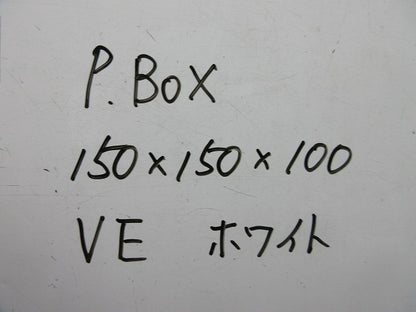 P.BOX
150×150×100
VE ホワイト